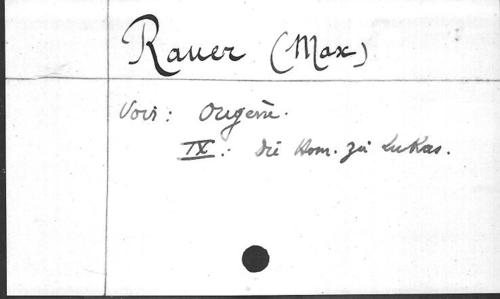 Rauer (Max)
Voir: Origène.
IX.: Die Hom. zu Lukas.